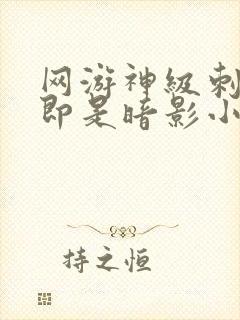 网游神级刺
即是暗影小
持之恒